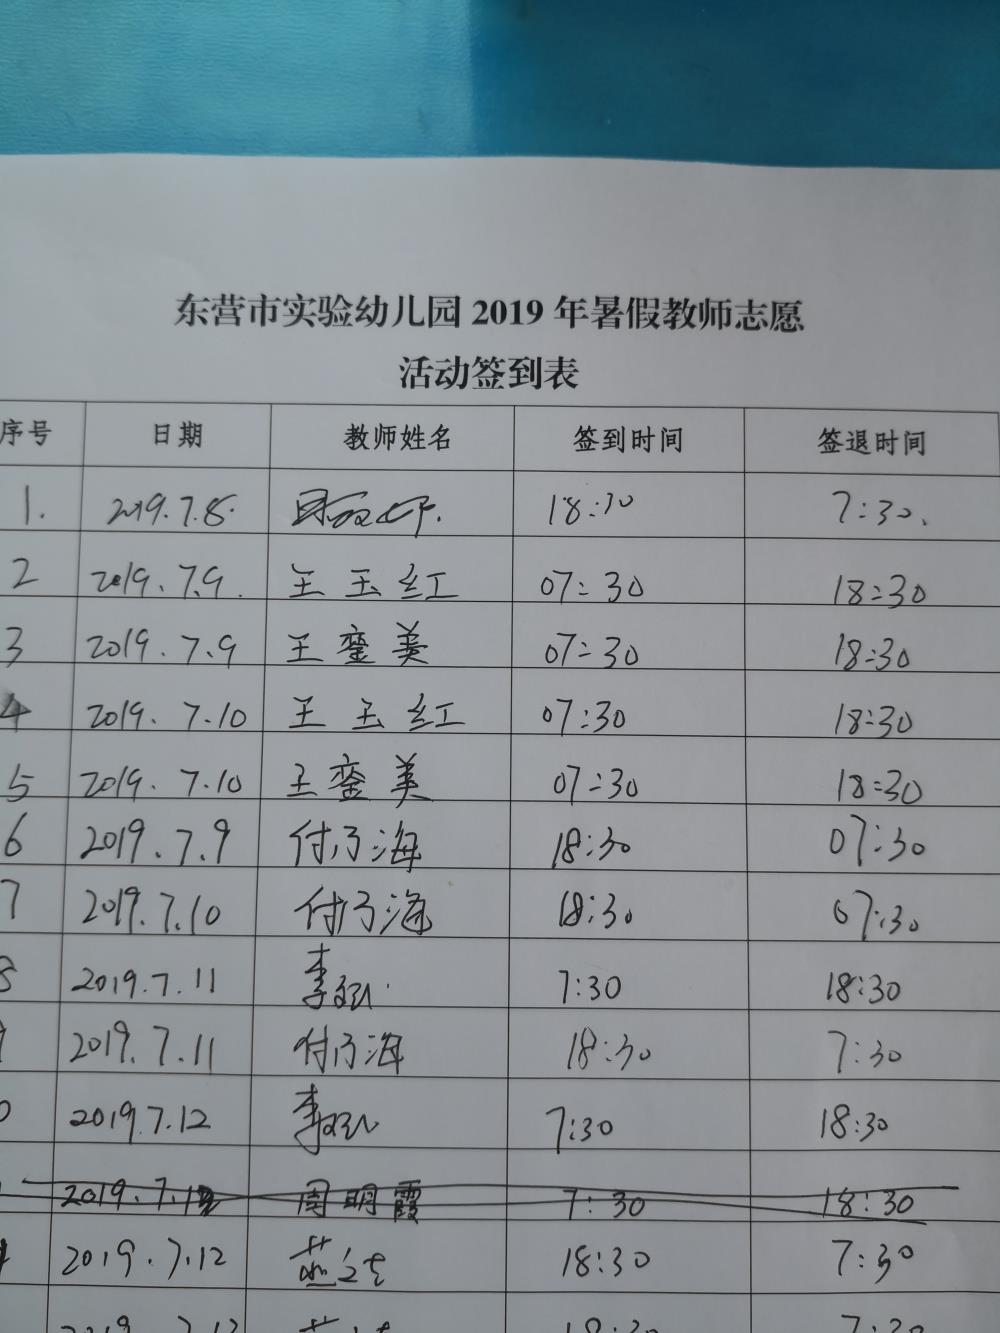 东营市实验幼儿园 2019 年暑假教师志愿
活动签到表
序号 日期 教师姓名 签到时间 签退时间
1. 2019.7.8. 18:30 7:30.
2 2019.7.9. 王玉红 07:30 18:30
3 2019.7.9 王銮美 07:30 18:30
4 2019.7.10 王玉红 07:30 18:30
5 2019.7.10 王銮美 07:30 18:30
6 2019.7.9 付乃海 18:30 07:30
7 2019.7.10 付乃海 18:30 07:30
8 2019.7.11 李 7:30 18:30
9 2019.7.11 付乃海 18:30 7:30
0 2019.7.12 李 7:30 18:30
2019.7.12 周明霞 7:30 18:30
2019.7.12 18:30 7:30
18:30 7:30